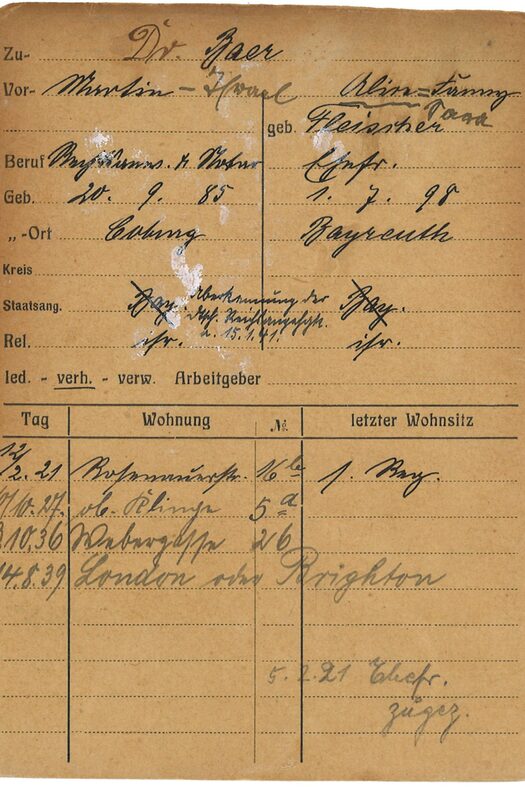 Zu- Dr. Baer
Vor- Martin - Israel Alin=Fanny
Sara
geb. Fleischer
Beruf & Notar Ehefr.
Geb. 20. 9. 85 1. 7. 98
„-Ort Coburg Bayreuth
Kreis
Staatsang. Bay. Aberkennung der Bay.
dtsch. Reichsangehgk.
15.1.41.
Rel. isr. isr.
led. - verh. - verw. Arbeitgeber
Tag Wohnung № letzter Wohnsitz
12/2. 21 Rosenauerstr. 16 b s. Reg.
/10.27. ob. Klinge 5 a
.10.36 Webergasse 26
14.8.39 London oder Brighton
5.2.21 Ehefr.
zugez.